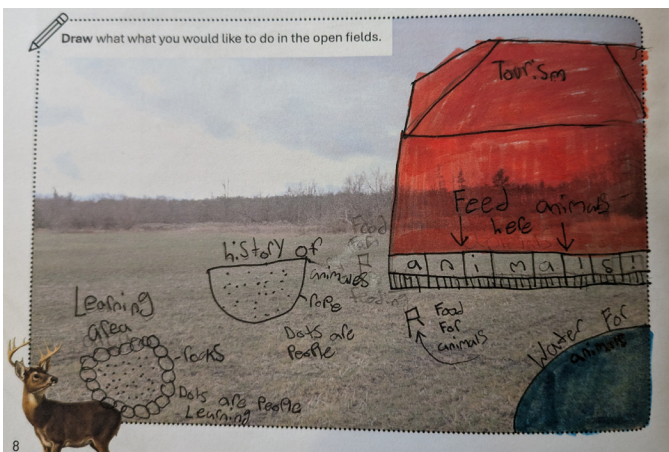 Draw what what you would like to do in the open fields.
Tourism
Feed animals
here
animals!
history of
animoles
rope
Dots are
People
Food
For
animals
Water For
animals
Learning
area
rocks
Dots are People
Learning
8